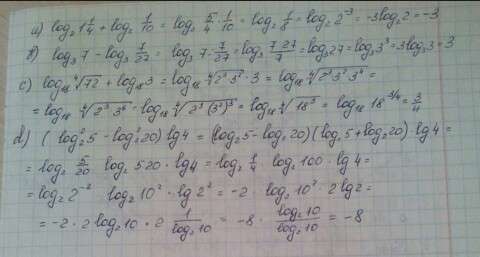 a) log₂ 1 1/4 + log₂ 1/10 = log₂ 5/4 · 1/10 = log₂ 1/8 = log₂ 2⁻³ = -3log₂2 = -3
b) log₃ 7 - log₃ 7/27 = log₃ 7 : 7/27 = log₃ 7·27/7 = log₃27 = log₃3³ = 3log₃3 = 3
c) log₁₈ ⁴√72 + log₁₈3 = log₁₈ ⁴√2³3² · 3 = log₁₈ ⁴√2³3²3⁴ =
= log₁₈ ⁴√2³3⁶ = log₁₈ ⁴√2³(3²)³ = log₁₈ ⁴√18³ = log₁₈ 18^3/4 = 3/4
d) (log₂²5 - log₂²20) lg4 = (log₂5 - log₂20)(log₂5 + log₂20) · lg4 =
= log₂ 5/20 · log₂ 5·20 · lg4 = log₂ 1/4 · log₂100 · lg4 =
= log₂2⁻² · log₂10² · lg2² = -2 · log₂10² · 2lg2 =
= -2 · 2log₂10 · 2 1/log₂10 = -8 · log₂10/log₂10 = -8